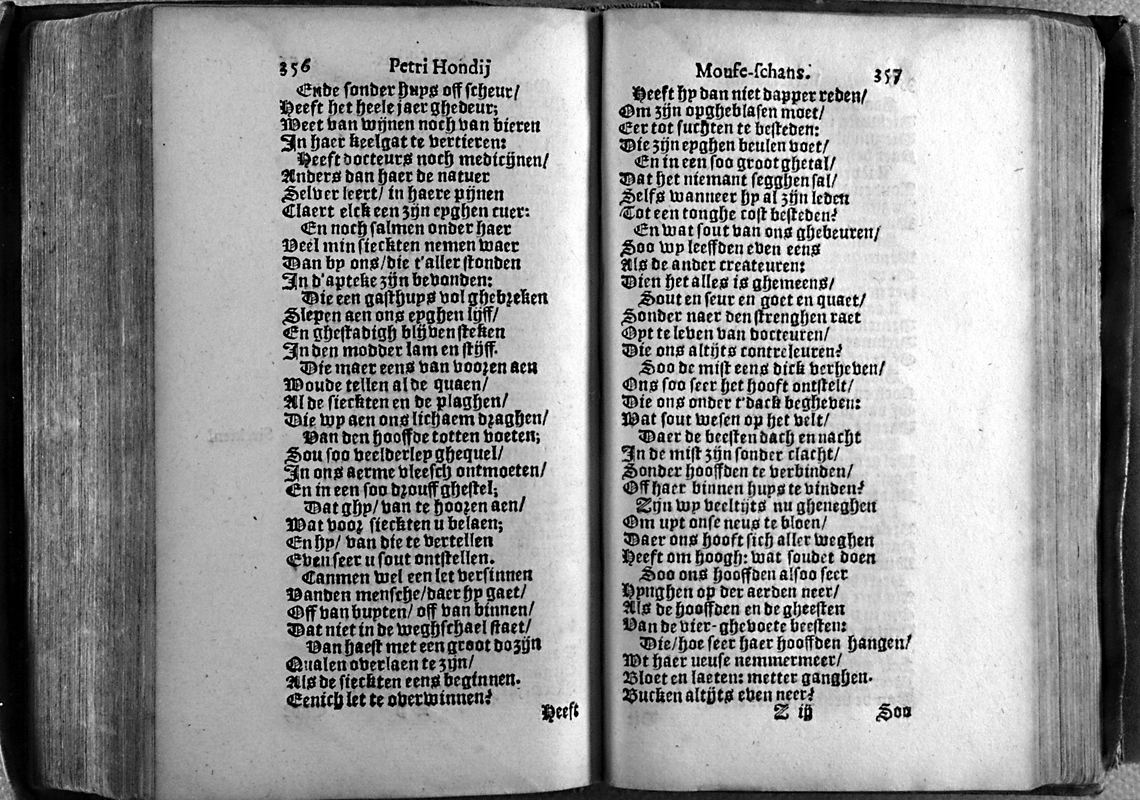 356 Petri Hondij
Ende sonder huys off scheur/
Heeft het heele jaer ghedeur;
Weet van wijnen noch van bieren
In haer keelgat te vertieren:
Heeft docteurs noch medicijnen/
Anders dan haer de natuer
Selver leert/ in haere pijnen
Claert elck een zijn eyghen cuer:
En noch salmen onder haer
Veel min sieckten nemen waer
Dan by ons/die t'aller stonden
In d'apteke zijn bevonden:
Die een gasthuys vol ghebreken
Slepen aen ons eyghen lijff/
En ghestadigh blijven steken
In den modder lam en stijff.
Die maer eens van vooren aen
Woude tellen al de quaen/
Al de sieckten en de plaghen/
Die wy aen ons lichaem draghen/
Van den hooffde totten voeten;
Sou soo veelderley ghequel/
In ons aerme vleesch ontmoeten/
En in een soo drouff ghestel;
Dat ghy/ van te hooren aen/
Wat voor sieckten u belaen;
En hy/ van die te vertellen
Even seer u sout ontstellen.
Canmen wel een let versinnen
Vanden mensche/daer hy gaet/
Off van buyten/ off van binnen/
Dat niet in de weghschael staet/
Van haest met een groot dozijn
Qualen overlaen te zyn/
Als de sieckten eens beginnen.
Eenich let te overwinnen?
Heeft
Mouse-schans. 357
Heeft hy dan niet dapper reden/
Om zijn opgheblasen moet/
Eer tot suchten te besteden:
Die zijn eyghen beulen voet/
En in een soo groot ghetal/
Dat het niemant segghen sal/
Selfs wanneer hy al zijn leden
Tot een tonghe cost besteden?
En wat sout van ons ghebeuren/
Soo wy leeffden even eens
Als de ander createuren:
Dien het alles is ghemeens/
Sout en seur en goet en quaet/
Sonder naer den strenghen raet
Opt te leven van docteuren/
Die ons altijts contreleuren?
Soo de mist eens dick verheven/
Ons soo seer het hooft ontstelt/
Die ons onder t'dack begheven:
Wat sout wesen op het velt/
Daer de beesten dach en nacht
In de mist zijn sonder clacht/
Sonder hooffden te verbinden/
Off haer binnen huys te vinden?
Zijn wy veeltijts nu gheneghen
Om upt onse neus te bloen/
Daer ons hooft sich aller weghen
Heeft om hoogh: wat soudet doen
Soo ons hooffden alsoo seer
Hynghen op der aerden neer/
Als de hooffden en de gheesten
Van de vier-ghevoete beesten:
Die/hoe seer haer hooffden hangen/
Wt haer neuse nemmermeer/
Bloet en laeten: metter ganghen.
Bucken altijts even neer?
Z iij Soo